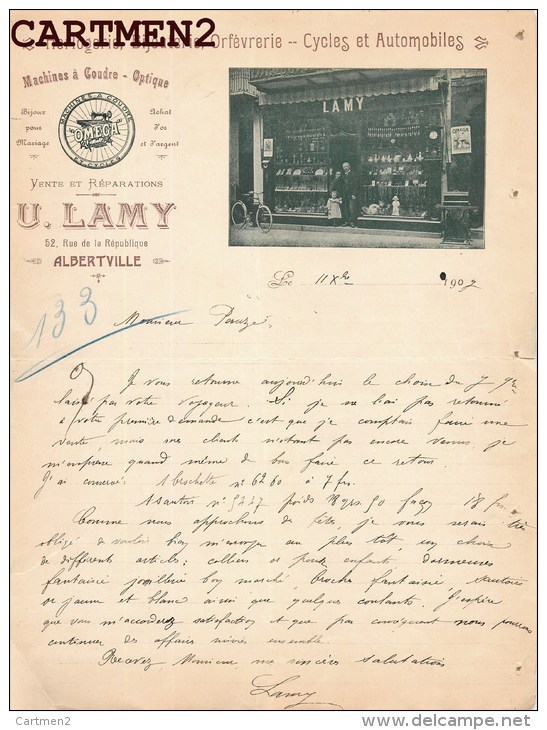 CARTMEN2
Horlogerie, Bijouterie, Orfèvrerie -- Cycles et Automobiles
Machines à Coudre - Optique
Bijoux pour Mariage
MACHINES A COUDRE
"OMEGA"
ET CYCLES
Achat d'or et d'argent
VENTE ET RÉPARATIONS
U. LAMY
52, Rue de la République
ALBERTVILLE
LAMY
OMEGA
Le 11 Xbre 1902
133
Monsieur
Je vous retourne aujourd'hui le choix du 7
laissé par votre voyageur. Si je ne l'ai pas retourné
à votre première demande c'est que je comptais faire une
vente, mais mes clients n'étant pas encore venus je
m'empresse quand même de vous faire ce retour.
J'ai conservé 1 brochette n° 6260 à 7 frs.
1 sautoir n° 5237 poids 18 grs.50 façon 18 frs
Comme nous approchons des fêtes, je vous serais très
obligé de vouloir bien m'envoyer au plus tôt, un choix
de différents articles: colliers or pour enfants, dormeuses
fantaisie joaillerie bon marché, broche fantaisie, sautoirs
or jaune et blanc ainsi que quelques coulants. J'espère
que vous m'accorderez satisfaction et que par conséquent nous pourrons
continuer des affaires suivies ensemble.
Recevez Monsieur mes sincères salutations
Lamy
Cartmen2
www.delcampe.net